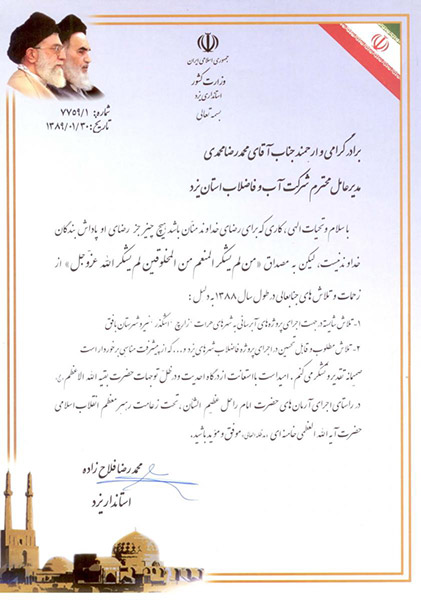 جمهوری اسلامی ایران
وزارت کشور
استانداری یزد
بسمه تعالی
شماره: ۷۷۵۹/۱
تاریخ: ۱۳۸۹/۰۱/۳۰
برادر گرامی و ارجمند جناب آقای محمدرضا محمدی
مدیر عامل محترم شرکت آب و فاضلاب استان یزد
با سلام و تحیات الهی، کاری که برای رضای خداوند منان باشد هیچ چیز جز رضای او پاداش بندگان
خداوند نیست، لیکن به مصداق «من لم یشکر المنعم من المخلوقین لم یشکر الله عزوجل» از
زحمات و تلاش های جنابعالی در طول سال ۱۳۸۸ به دلیل :
۱- تلاش شایسته در جهت اجرای پروژه های آبرسانی به شهرهای هرات - زارچ - اشکذر - نیر و شهرستان بافق
۲- تلاش مطلوب و قابل تحسین در اجرای پروژه فاضلاب شهرهای یزد و ... که از پیشرفت مناسبی برخوردار است
صمیمانه تقدیر و تشکر می کنم. امید است با استعانت از درگاه احدیت و در ظل توجهات حضرت بقیه الله الاعظم (عج)،
در راستای اجرای آرمان های حضرت امام راحل عظیم الشان، تحت زعامت رهبر معظم انقلاب اسلامی
حضرت آیه الله العظمی خامنه ای (مدظله العالی) موفق و موید باشید.
محمدرضا فلاح زاده
استاندار یزد